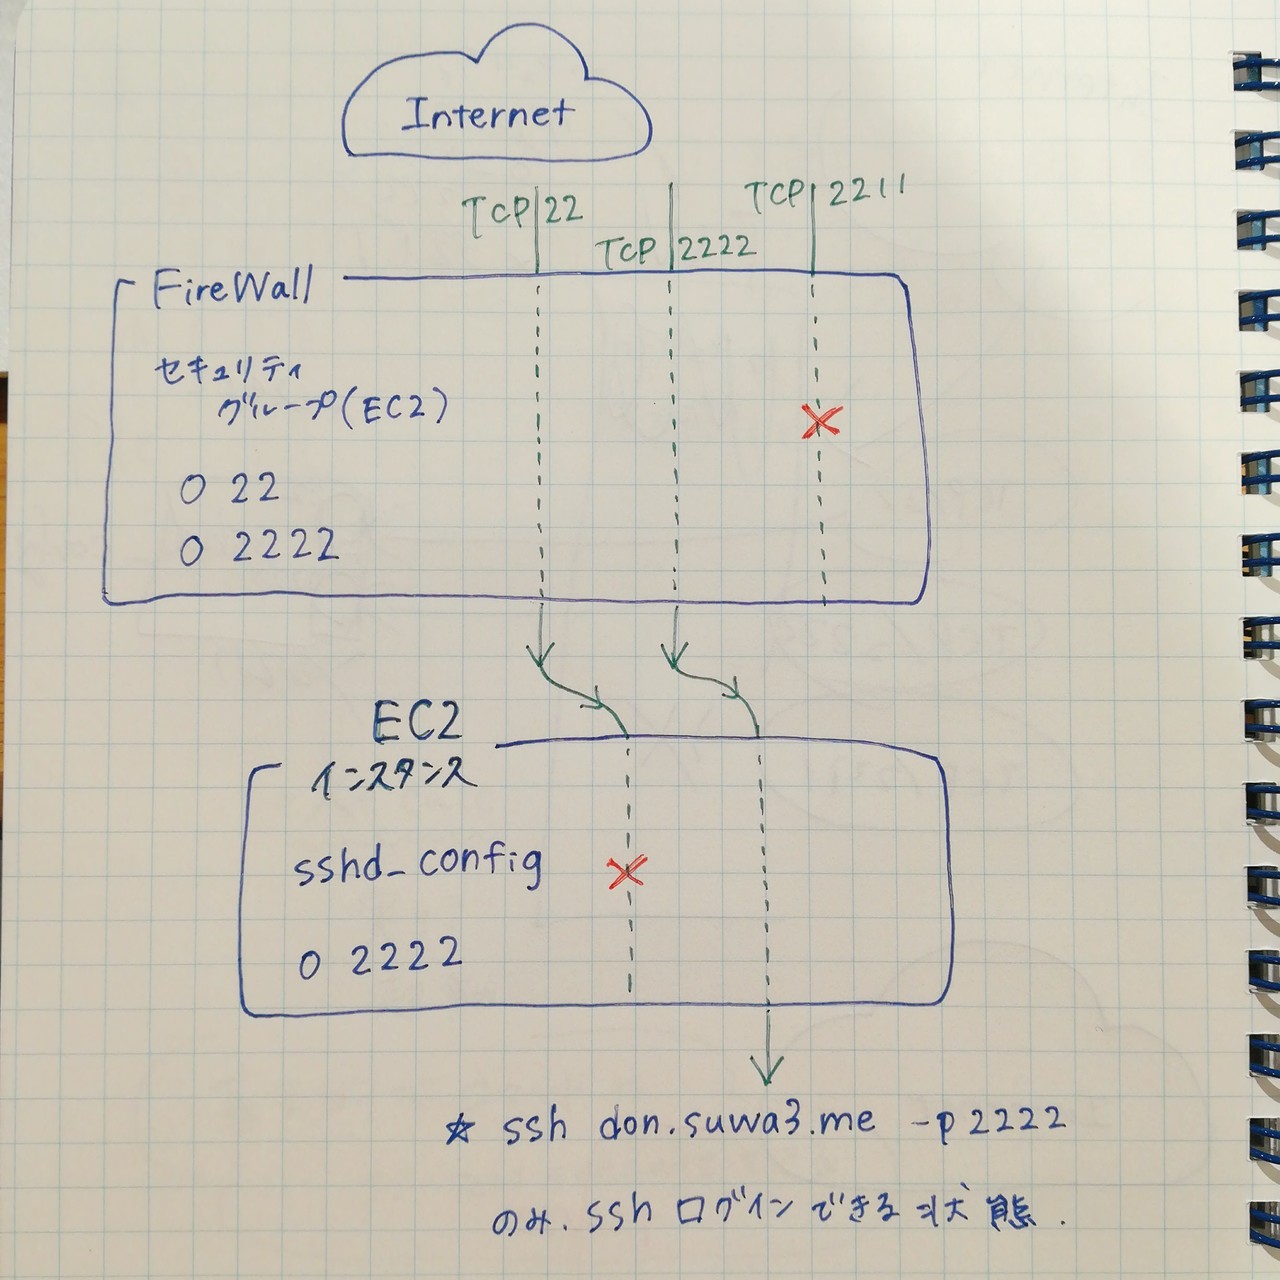 Internet
TCP 22
TCP 2222
TCP 2211
FireWall
セキュリティ
グループ(EC2)
○ 22
○ 2222
EC2
インスタンス
sshd_config
○ 2222
☆ ssh don.suwa3.me -p 2222
のみ. ssh ログインできる状態.